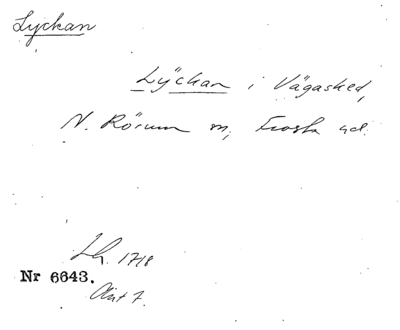 Lyckan
Lyckan i Vägasked,
N. Rörum sn, Frosta hd.
Lh. 1718
Nr 6643.